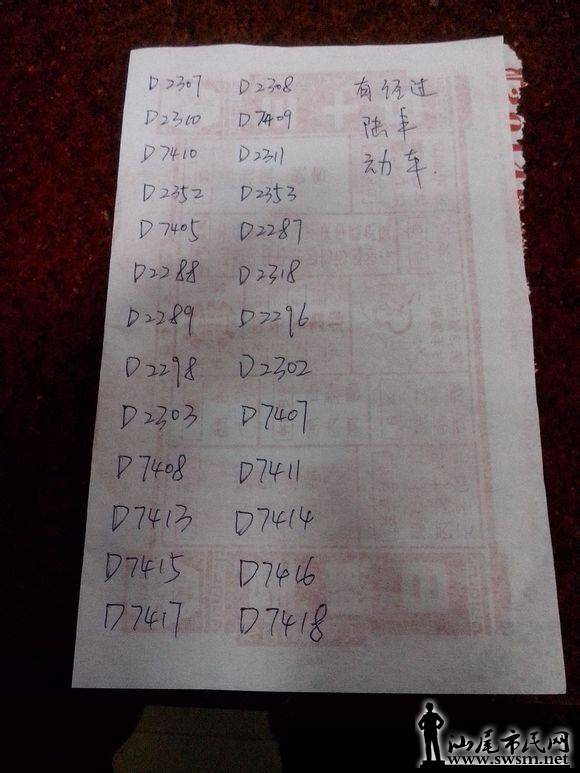 D2307 D2308 有经过
D2310 D7409 陆丰
D7410 D2311 动车.
D2352 D2353
D7405 D2287
D2288 D2318
D2289 D2296
D2298 D2302
D2303 D7407
D7408 D7411
D7413 D7414
D7415 D7416
D7417 D7418
汕尾市民网
www.swsm.net